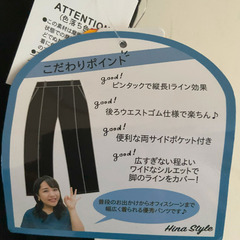 ATTENTION
(色落ち
こだわりポイント
good!
ピンタックで縦長Iライン効果
good!
後ろウエストゴム仕様で楽ちん♪
good!
便利な両サイドポケット付き
good!
広すぎない程よい
ワイドなシルエットで
脚のラインをカバー!
普段のお出かけからオフィスシーンまで
幅広く着られる優秀パンツです♪
Hina Style